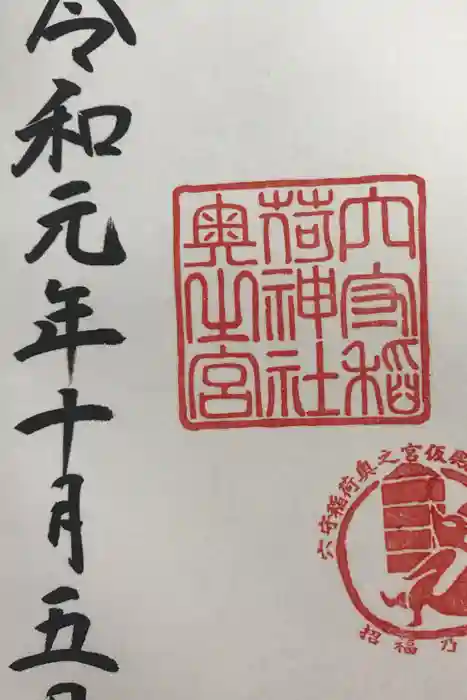 六守稲
荷神社
奥之宮
六守稲荷奥之宮仮
招福乃
令和元年十月五日